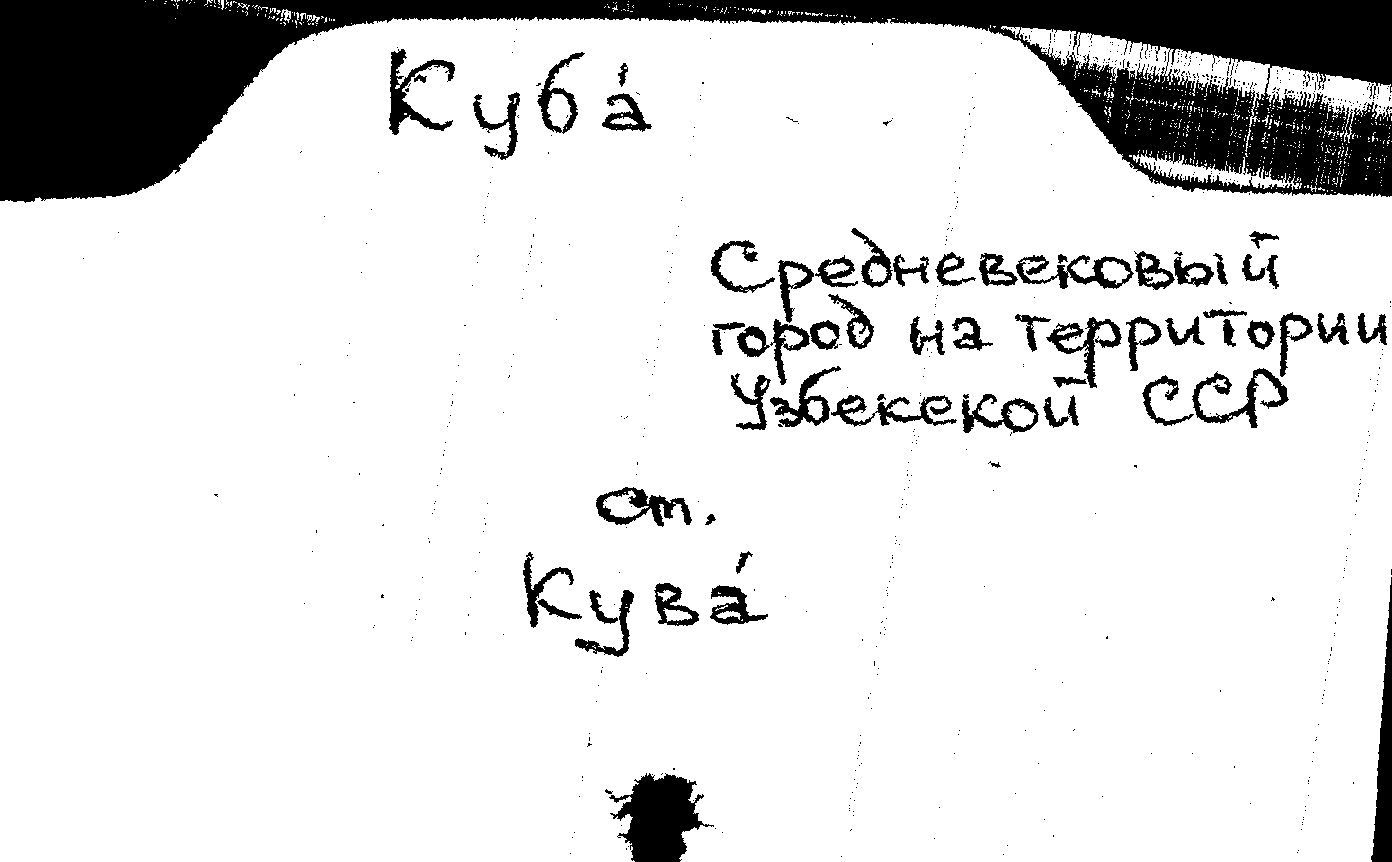 Куба́
Средневековый
город на территории
Узбекской ССР
ст.
Кува́